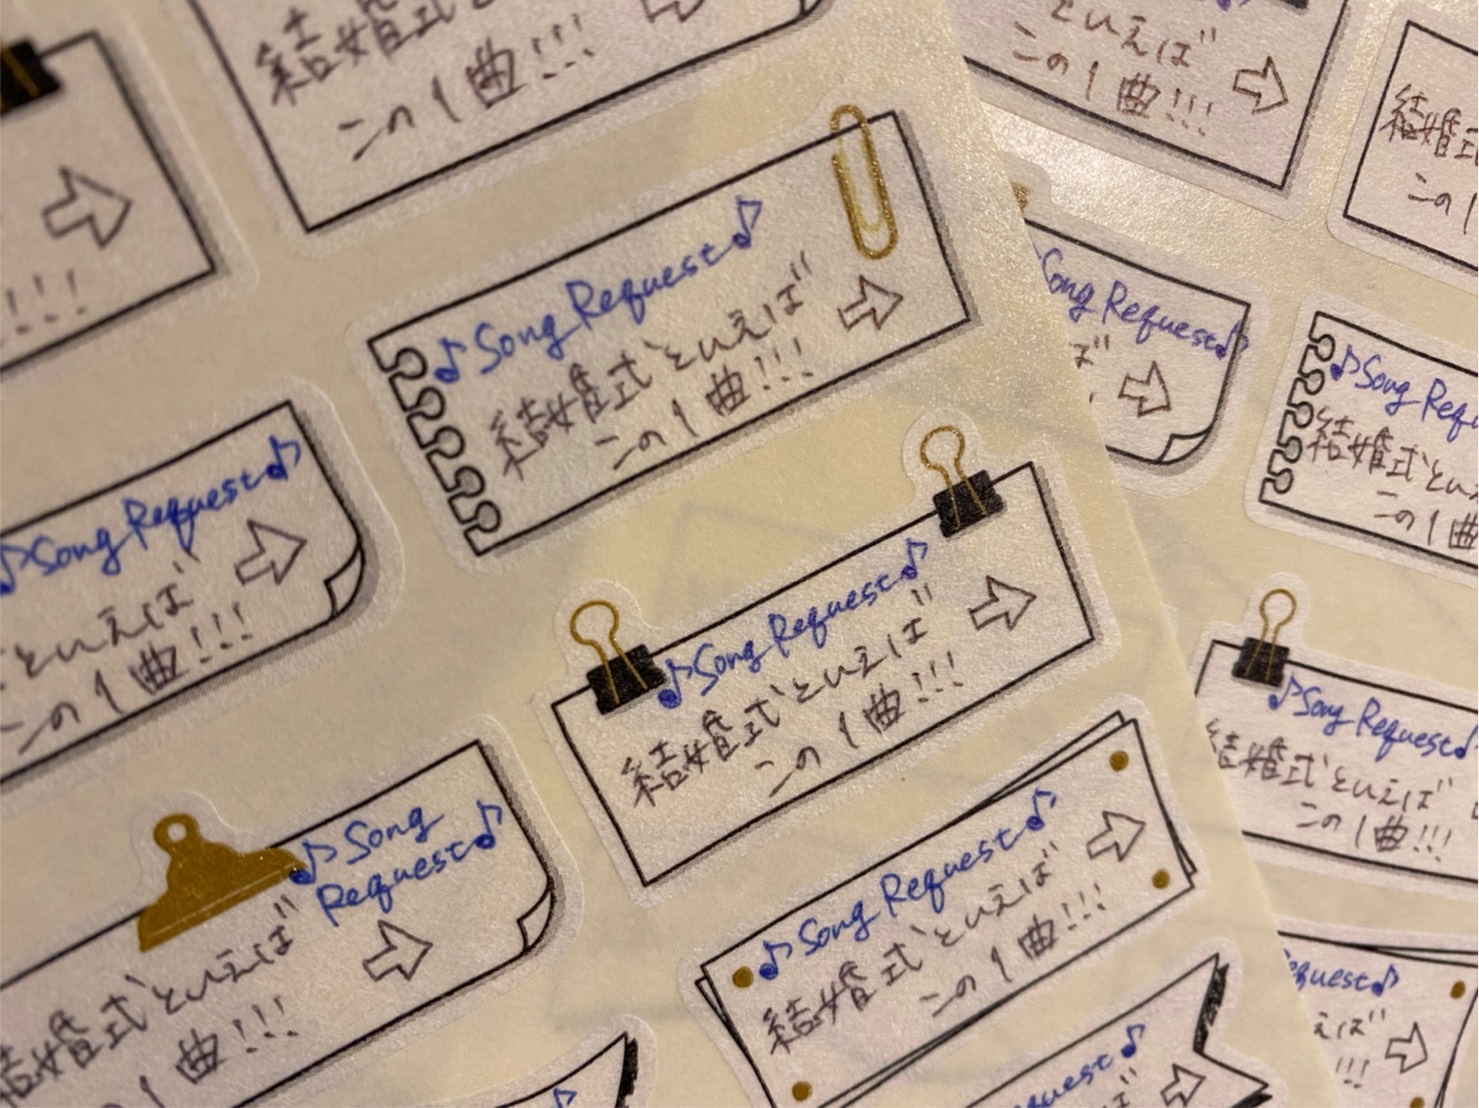 結婚式と
この1曲!!!
といえば
この1曲!!!
結婚式
この1
!!!
♪Song Request♪
結婚式といえば
この1曲!!!
Song Request♪
ば
♪Song Requ
結婚式とい
この1曲
♪Song Request♪
といえば
この1曲!!!
♪Song Request♪
結婚式といえば
この1曲!!!
♪Song Request♪
結婚式といえば
この1曲!!!
♪Song
Request♪
結婚式といえば
1曲!!!
♪Song Request♪
結婚式といえば
この1曲!!!
quest♪
えば
!!!
Request♪
ば
♪